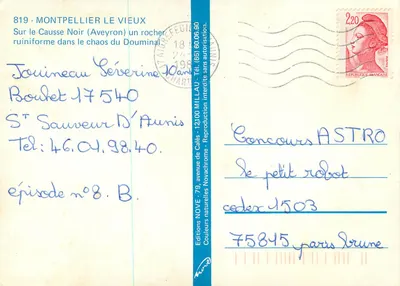 819 - MONTPELLIER LE VIEUX
Sur le Causse Noir (Aveyron) un rocher
ruiniforme dans le chaos du Douminal.
Jouineau Séverine 10 ans
Boulet 17540
St Sauveur D'Aunis
Tel: 46.01.98.40.
épisode n°8. B.
Editions NOVE - 79, avenue de Calès - 12100 MILLAU - Tél. (65) 60.05.90
Couleurs naturelles Novachrome - Reproduction interdite sans autorisation.
18
2,20
Concours ASTRO
le petit robot
codex 1503
75815 paris brune